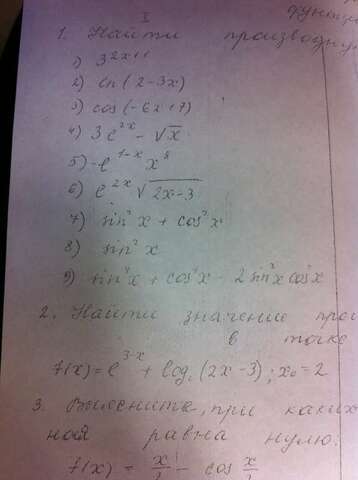 I
1. Найти производну
1) 3^{2x+1}
2) ln(2-3x)
3) cos(-6x+7)
4) 3e^{2x} - √x
5) -e^{1-x} x^8
6) e^{2x} √(2x-3)
7) sin²x + cos²x
8) sin²x
9) sin^4 x + cos²x - 2sin²x cos²x
2. Найти значение про
в точке
f(x) = e^{3-x} + log (2x-3); x₀=2
3. Выясните, при каких
ной равна нулю:
f(x) = x - cos x